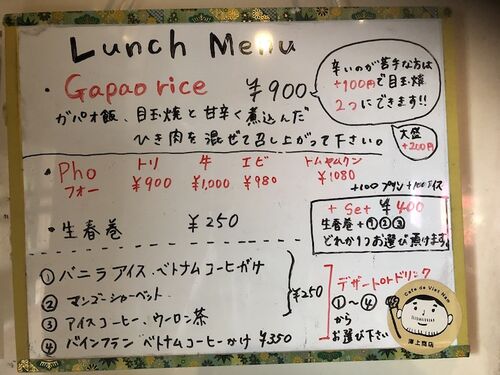 Lunch Menu
・Gapao rice ¥900
ガパオ飯、目玉焼と甘辛く煮込んだ
ひき肉を混ぜて召し上がって下さい。
辛いのが苦手な方は
+100円で目玉焼
2つにできます!!
大盛
+200円
・Pho トリ 牛 エビ トムヤムクン
フォー ¥900 ¥1,000 ¥980 ¥1080
+100プリン +100アイス
・生春巻 ¥250
+ Set ¥400
生春巻+①②③
どれか1つお選び頂けます。
① バニラアイス・ベトナムコーヒーがけ
② マンゴーシャーベット
③ アイスコーヒー、ウーロン茶
¥250
④ バインフラン・ベトナムコーヒーかけ ¥350
デザートorドリンク
①～④
から
お選び下さい
Cafe de Viet Nam
海上商店